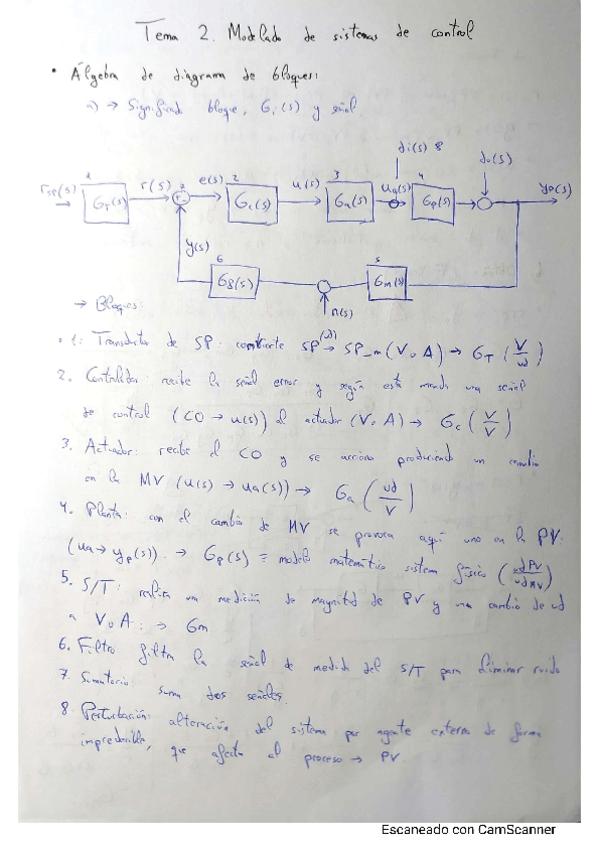 Tema 2. Modelado de sistemas de control
• Álgebra de diagrama de bloques:
a) → Significado bloque, Gi(s) y señal
di(s) 8
do(s)
rsp(s) 1 GT(s) r(s) 7 e(s) 2 Gc(s) u(s) 3 Ga(s) ua(s) 4 Gp(s) yp(s)
y(s)
6 Gf(s) 5 Gm(s)
n(s)
→ Bloques:
• 1: Transductor de SP: convierte SP (ud) → SP_m (V o A) → GT (V/ud)
2. Controlador: recibe la señal error y según esta manda una señal
de control (CO → u(s)) al actuador (V o A) → Gc (V/V)
3. Actuador: recibe el CO y se acciona produciendo un cambio
en la MV (u(s) → ua(s)) → Ga (ud/V)
4. Planta: con el cambio de MV se provoca aquí uno en la PV.
(ua → yp(s)). → Gp(s) = modelo matemático sistema físico (udPV/udMV)
5. S/T: realiza una medición de magnitud de PV y una cambio de ud
a V o A: → Gm
6. Filtro filtra la señal de medida del S/T para eliminar ruido
7. Sumatorio: suma dos señales.
8. Perturbación: alteración del sistema por agente externo de forma
impredecible, que afecta al proceso → PV.
Escaneado con CamScanner